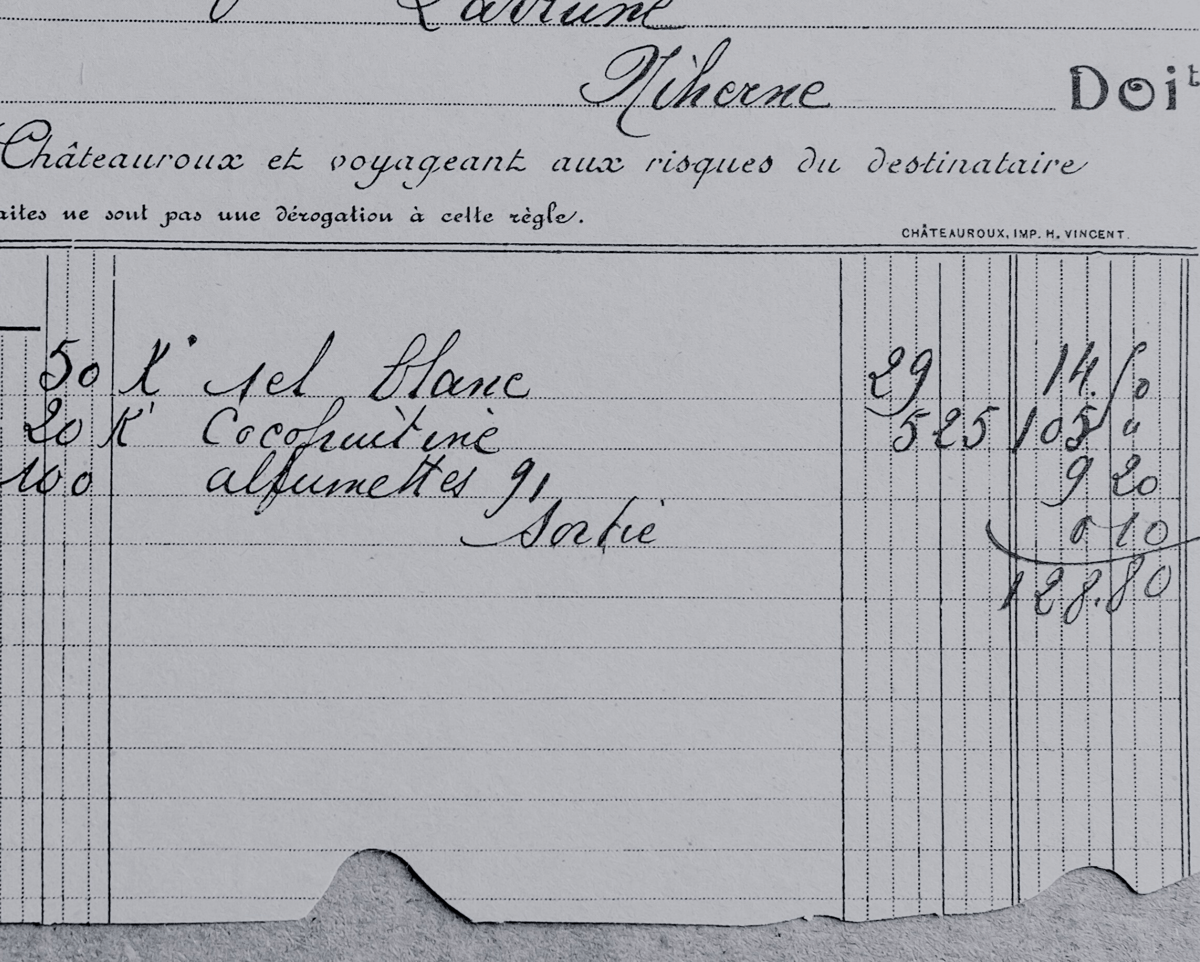 Niherne Doit
Châteauroux et voyageant aux risques du destinataire
aites ne sont pas une dérogation à cette règle.
CHÂTEAUROUX, IMP. H. VINCENT.
50 K° sel blanc 29 14.50
20 K° Cocofruitine 525 105 "
100 allumettes 91 9 20
Sortie 0 10
128.80